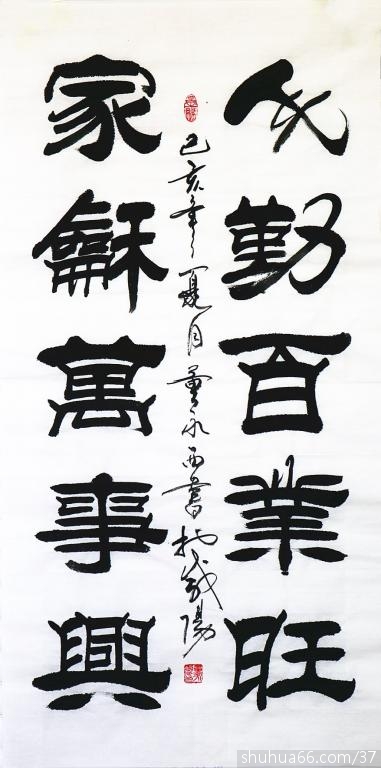 人勤百業旺
己亥年夏月董永西書於咸陽
家龢萬事興
shuhua66.com/37